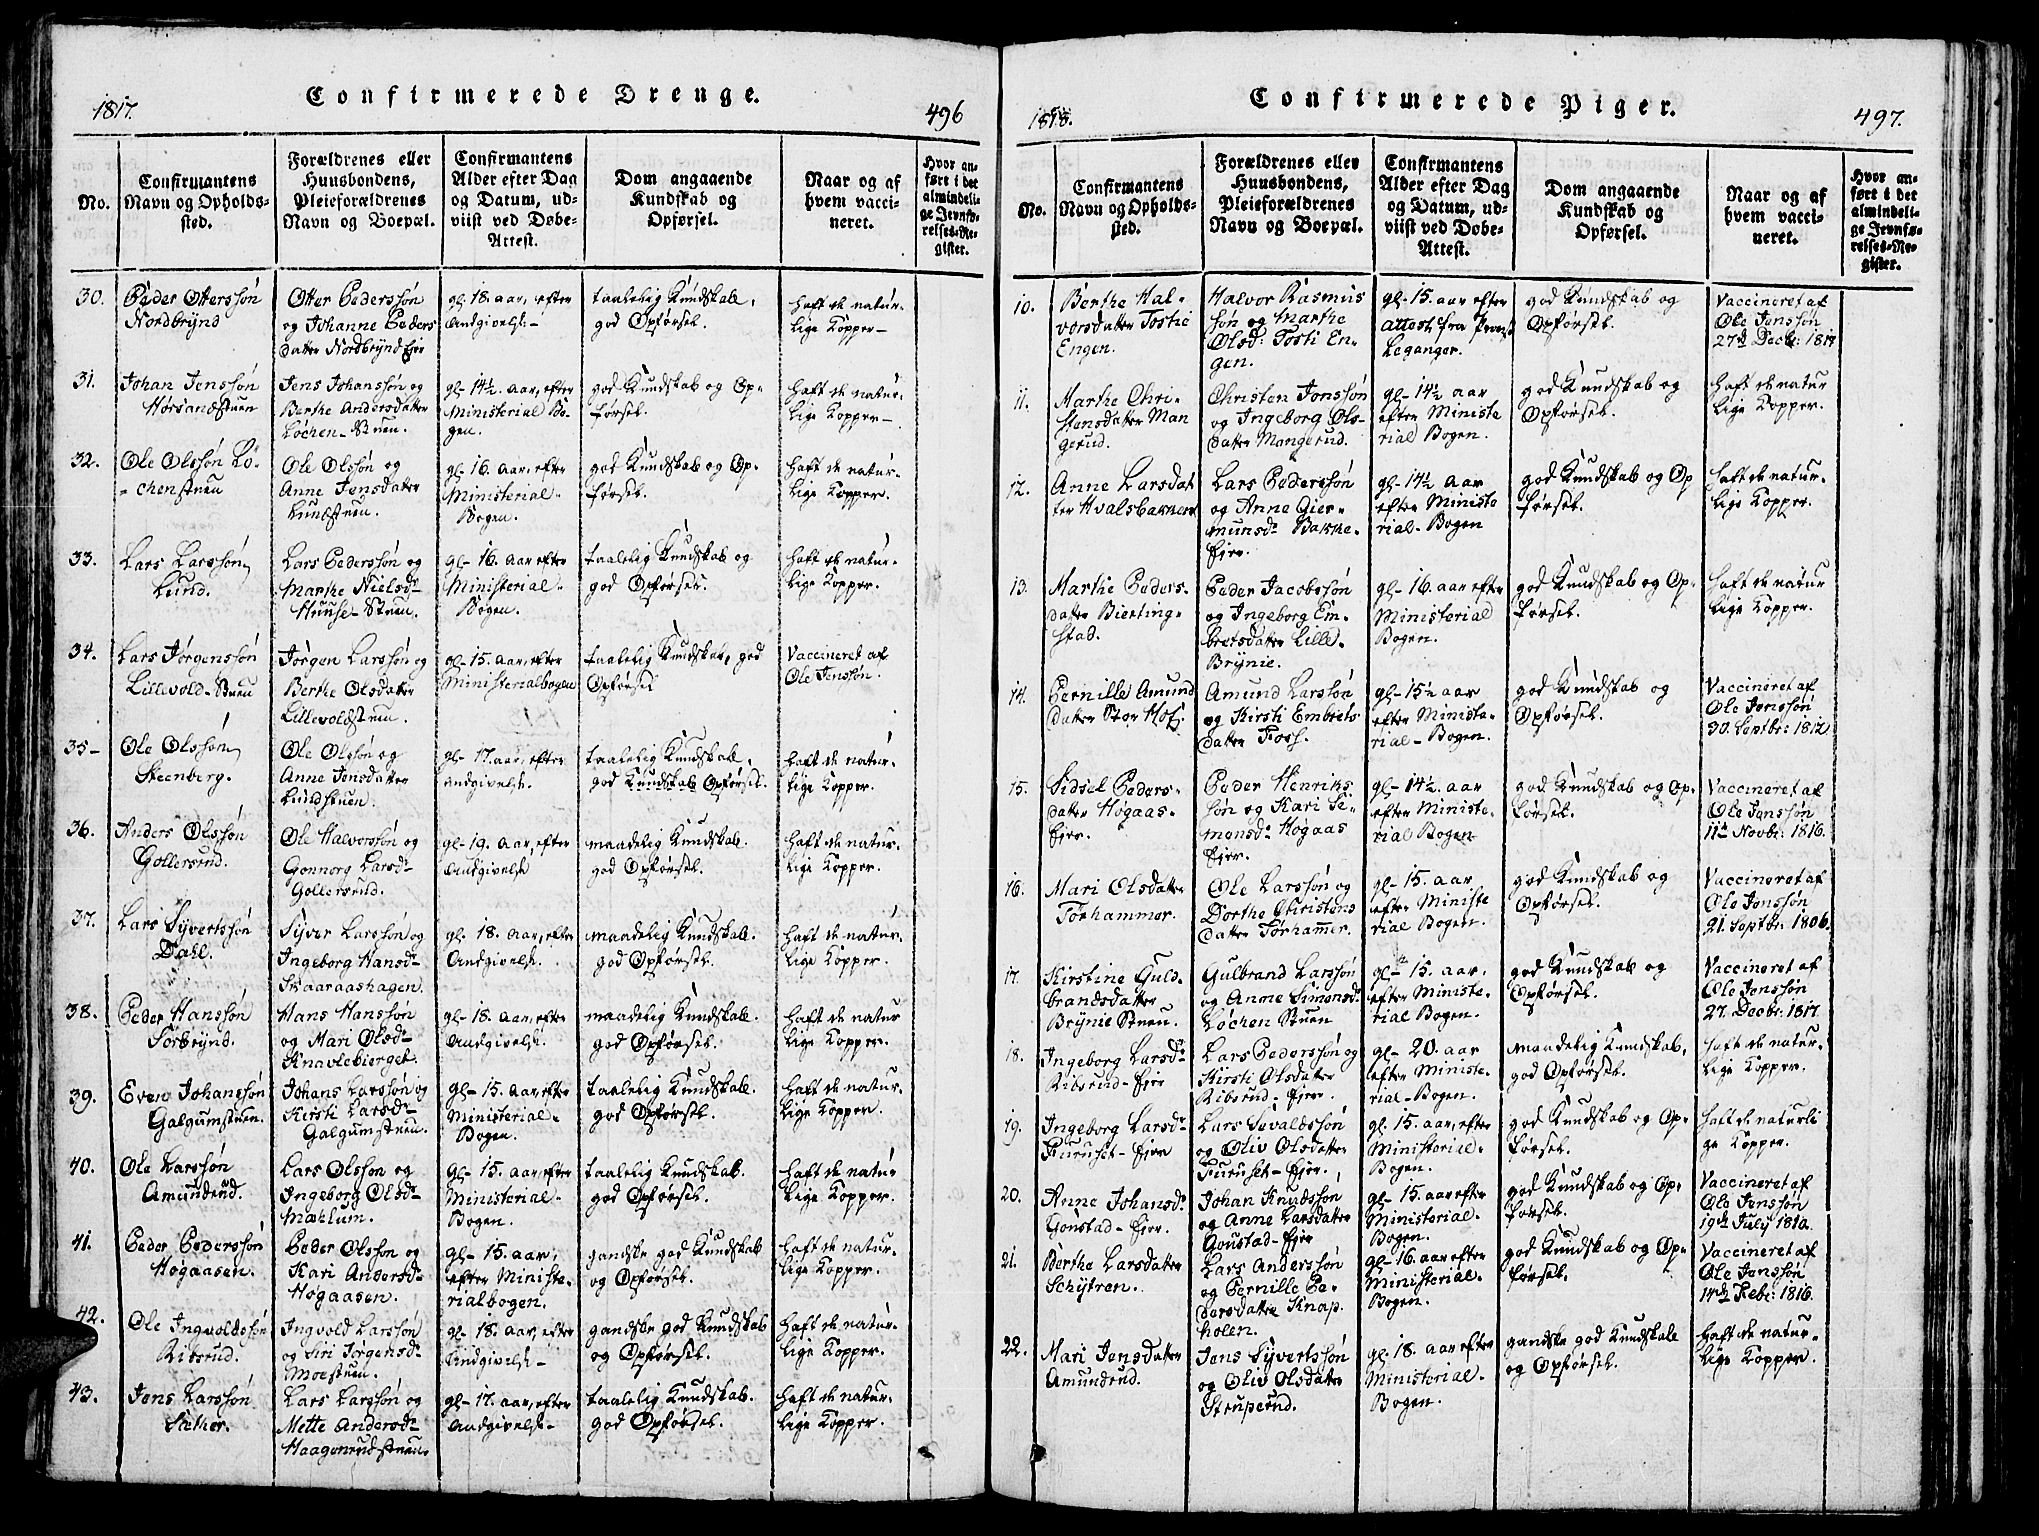 1817.
Confirmerede Drenge.
496
No.
Confirmantens
Navn og Opholds-
sted.
Forældrenes eller
Huusbondens,
Pleieforældrenes
Navn og Boepæl.
Confirmantens
Alder efter Dag
og Datum, ud-
viist ved Døbe-
Attest.
Dom angaaende
Kundskab og
Opførsel.
Naar og af
hvem vacci-
neret.
Hvor an-
ført i det
almindeli-
ge Jevnfø-
relses-Re-
gister.
30.
Peder Otterssøn
Nordbrÿnd
Otter Pederssøn
og Johanne Peders
datter Nordbrÿnd Ejer
gl- 18. aar, efter
Andgivelse-
taalelig Kundskab,
god Opførsel.
Haft de natur-
lige Kopper-
31.
Johan Jenssøn
Horsandstuen
Jens Johanssøn og
Berthe Andersdatter
Løchen-Stuen.
gl- 14½ aar, efter
Ministerial Bo-
gen.
god Kundskab og Op-
førsel.
Haft de natur-
lige Kopper-
32.
Ole Olssøn Lö-
-chenstuen
Ole Olssøn og
Anne Jensdatter
Lundstuen.
gl- 16. aar, efter
Ministerial-
Bogen.
god Kundskab og Op-
førsel.
Haft de natur-
lige Kopper.
33.
Lars Larssøn
Lund.
Lars Pederssøn og
Marthe Nielsd-
Huuse-Stuen.
gl- 16. aar efter
Ministerial-
Bogen.
taalelig Kundskab og
god Opførsel.
Haft de natur-
lige Kopper.
34.
Lars Jørgenssøn
Lillevold-Stuen
Jørgen Larssøn og
Berthe Olsdatter
Lillevoldstuen.
gl- 15. aar, efter
Ministerialbogen
taalelig Kundskab, god
Opførsel
Vaccineret af
Ole Jenssøn.
35-
Ole Olssøn
Steenberg.
Ole Olssøn og
Anne Jensdatter
Lundstuen.
gl- 17. aar, efter
Andgivelse.
taalelig Kundskab,
god Kundskab Opførsel.
Haft de natur-
lige Kopper.
36.
Anders Olssøn
Gollerud.
Ole Halvorssøn og
Gonnorg Larsd-
Gollersrud.
gl- 19. aar, efter
Andgivelse
maadelig Kundskab.
god Opførsel.
Haft de natur-
lige Kopper.
37.
Lars Sÿvertssøn
Dahl.
Sÿver Larssøn og
Ingeborg Hansd-
Skaaraashagen.
gl. 18. aar, efter
Andgivelse.
maadelig Kundskab.
god Opførsel.
Haft de natur-
lige Kopper.
38.
Peder Hanssøn
Sörbrÿnd.
Hans Hanssøn
og Mari Olsd-
Knavlebierget.
gl- 18. aar, efter
Andgivelse.
maadelig Kundskab.
god Opførsel.
Haft de natur
lige Kopper.
39.
Even Johanssøn
Galgumstuen.
Johans Larssøn og
Kirsti Larsd-
Galgumstuen.
gl- 15. aar, efter
Ministerial-
Bogen.
taalelig Kundskab.
god Opførsel.
Haft de natur-
lige Kopper.
40.
Ole Larssøn
Amundrud.
Lars Olsson og
Ingeborg Olsd-
Mæhlum.
gl- 15. aar, efter
Ministerial-
Bogen.
taalelig Kundskab.
god Opførsel.
Haft de natur
lige Kopper.
41.
Peder Pederssøn
Høgaasen.
Peder Olsson og
Kari Andersd-
Høgaasen.
gl- 15. aar,
efter Ministe-
rialbogen.
gandske god Kundskab
og Opførsel.
Haft de natur-
lige Kopper.
42.
Ole Ingvoldssøn
Ribsrud.
Ingvold Larssøn
og Siri Jørgensd-
Moestuen.
gl- 18. aar, efter
Andgivelse-
gandske god Kundskab
og Opførsel.
Haft de natur-
lige Kopper.
43.
Jens Larssøn
Sæther.
Lars Larssøn og
Mette Andersd-
Haagenrudstuen.
gl- 17. aar, efter
Andgivelse-
taalelig Kundskab.
god Opførsel.
Haft de natur-
lige Kopper.
1818.
Confirmerede Piger.
497.
No.
Confirmantens
Navn og Opholds-
sted.
Forældrenes eller
Huusbondens,
Pleieforældrenes
Navn og Boepæl.
Confirmantens
Alder efter Dag
og Datum, ud-
viist ved Døbe-
Attest.
Dom angaaende
Kundskab og
Opførsel.
Naar og af
hvem vacci-
neret.
Hvor an-
ført i det
almindeli-
ge Jevnfø-
relses-Re-
gister.
10.
Berthe Hal-
vorsdatter Tostie
Engen.
Halvor Rasmus
søn og Marthe
Olsd: Tosti En-
gen.
gl- 15. aar efter
attest fra Provst
Leganger.
god Kundskab og
Opførsel.
Vaccineret af
Ole Jenssøn
27de Decbr: 1817
11.
Marthe Chri-
stensdatter Man
gerud.
Christen Jonssøn
og Ingeborg Ols-
datter Mangerud.
gl- 14½ aar
efter Ministe
rial Bogen.
god Kundskab og
Opførsel.
Haft de natur
lige Kopper.
12.
Anne Larsdat
ter Hvalsbakken
Lars Pederssøn
og Anne Gier-
munsd- Bakke-
Ejer.
gl- 14½ aar
efter Ministe
rial-Bogen
god Kundskab og Op
førsel.
Haft de natur-
lige Kopper.
13.
Marthe Peders-
datter Bierting-
stad.
Peder Jacobssøn
og Ingeborg Em-
bretsdatter Lille-
Brÿnie.
gl- 16. aar efter
Ministerial
Bogen.
god Kundskab og Op-
førsel.
Haft de natur
lige Kopper.
14.
Pernille Amund
datter Stor Hof.
Amund Larssøn
og Kirsti Embrets
datter Foss.
gl- 15½ aar
efter Ministe-
rial-Bogen.
god Kundskab og
Opførsel.
Vaccineret af
Ole Jenssøn
30. Septbr: 1812
15.
Sidsel Peders-
datter Høgaas-
Ejer.
Peder Henriks
søn og Kari Si-
monsd- Høgaas
Ejer.
gl- 14½ aar
efter Ministe-
rial Bogen
god Kundskab og Op-
førsel.
Vaccineret af
Ole Jenssøn
11te Novbr: 1816.
16.
Mari Olsdatter
Torhammer.
Ole Larssøn og
Dorthe Christens
datter Torham̅er.
gl- 15. aar
efter Ministe
rial Bogen.
god Kundskab og
Opførsel.
Vaccineret af
Ole Jenssøn
21. Septbr: 1806.
17.
Kirstine Guld-
brandsdatter
Brÿnie Stuen.
Gulbrand Larssøn
og Anne Simonsd-
Løchen Stuen
gl- 15. aar.
efter Ministe-
rial Bogen.
god Kundskab og
Opførsel.
Vaccineret af
Ole Jenssøn
27. Decbr: 1817.
18.
Ingeborg Larsd-
Ribsrud-Ejer
Lars Pederssøn og
Kirsti Olsdatter
Ribsrud-Ejer.
gl- 20. aar
efter Ministe-
rial-Bogen.
maadelig Kundskab,
god Opførsel.
Haft de natur-
lige Kopper.
19.
Ingeborg Larsd-
Furuset-Ejer
Lars Sivaldssøn
og Oliv Olsdatter
Furuset-Ejer.
gl. 15. aar, efter
Ministerial-
Bogen.
god Kundskab og Op-
førsel.
Haft de naturli
ge Kopper.
20.
Anne Johansd-
Gonstad-Ejer.
Johan Knudssøn
og Anne Larsdatter
Gonstad-Ejer
gl- 15. aar efter
Ministerial-
Bogen.
god Kundskab og Op-
førsel.
Vaccineret af
Ole Jenssøn
19de Julÿ 1810.
21.
Berthe Larsdatter
Schÿtren.
Lars Anderssøn
og Pernille Pe-
dersdatter Knap-
holen.
gl- 16. aar efter
Ministerial-
Bogen.
god Kundskab og Op-
førsel.
Vaccineret af
Ole Jenssøn
14de Febr: 1816.
22.
Mari Jensdatter
Amundrud.
Jens Sÿvertssøn
og Oliv Olsdatter
Struperud.
gl. 18. aar efter
Ministerial-
Bogen.
gandske god Kundskab
og Opførsel.
Haft de natur-
lige Kopper.